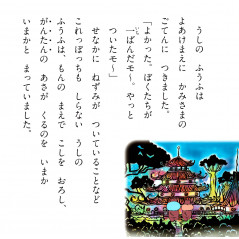 うしの　ふうふは
よあけまえに　かみさまの
ごてんに　つきました。
「よかった。ぼくたちが
一ばんだモ～。やっと
ついたモ～」
せなかに　ねずみが　ついていることなど
これっぽっちも　しらない　うしの
ふうふは、もんの　まえで　こしを　おろし、
がんたんの　あさが　くるのを　いまか
いまかと　まっていました。